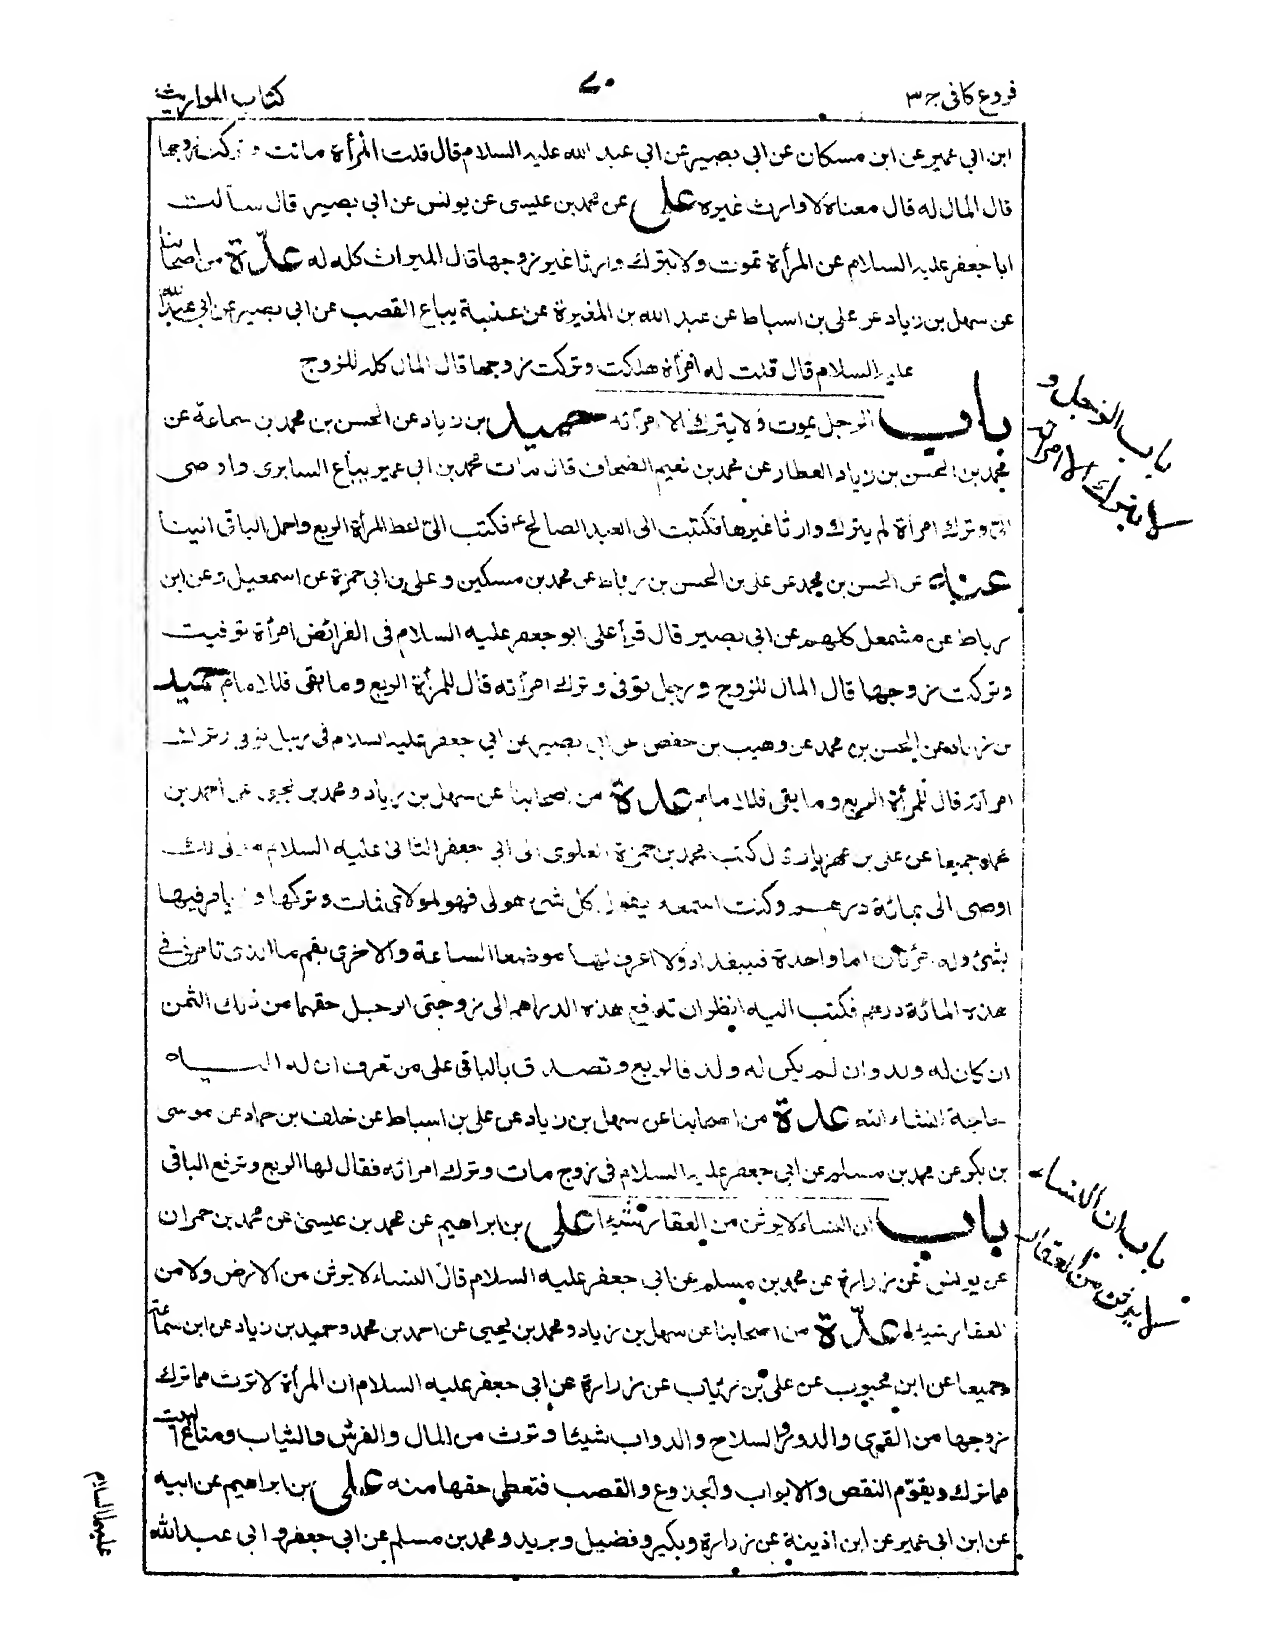 فروع كافى ج٣
٧٠
كتاب المواريث
ابن ابى عمير عن ابن مسكان عن ابى بصير عن ابى عبد الله عليه السلام قال قلت امرأة ماتت و تركت زوجها
قال المال له قال معناه لا وارث غيره على عن محمد بن عيسى عن يونس عن ابى بصير قال سألت
ابا جعفر عليه السلام عن المرأة تموت ولا تترك وارثا غير زوجها قال الميراث كله له عدّة من اصحابنا
عن سهل بن زياد عن على بن اسباط عن عبد الله بن المغيرة عن عنبة بياع القصب عن ابى بصير عن ابى عبد الله
عليه السلام قال قلت له امرأة هلكت وتركت زوجها قال المال كله للزوج
باب الرجل يموت ولا يترك الا امرأته حميد بن زياد عن الحسن بن محمد بن سماعة عن
محمد بن الحسن بن زياد العطار عن محمد بن نعيم الصحاف قال مات محمد بن ابى عمير بياع السابرى واوصى
الىّ وترك امرأة لم يترك وارثا غيرها فكتبت الى العبد الصالح ع فكتب الىّ اعط المرأة الربع واحمل الباقى الينا
عنه عن الحسن بن محمد عن على بن الحسن بن رباط عن محمد بن مسكين وعلى بن ابى حمزة عن اسمعيل وعن ابن
رباط عن مشمعل كلهم عن ابى بصير قال قرأ على ابو جعفر عليه السلام فى الفرائض امرأة توفيت
وتركت زوجها قال المال للزوج ورجل توفى وترك امرأته قال للمرأة الربع وما بقى فللامام حميد
بن زياد عن الحسن بن محمد عن وهيب بن حفص عن ابى بصير عن ابى جعفر عليه السلام فى رجل توفى وترك
امرأته قال للمرأة الربع وما بقى فللامام عدة من اصحابنا عن سهل بن زياد و محمد بن يحيى عن احمد بن
محمد جميعا عن على بن مهزيار قال كتب محمد بن حمزة العلوى الى ابى جعفر الثانى عليه السلام مولى لك
اوصى الى بمائة درهم وكنت اسمعه يقول كل شئ هو لى فهو لمولاى فمات وتركها و لم يامر فيها
بشئ وله امرأتان اما واحدة فببغداد ولا اعرف لها موضعا الساعة والاخرى بقم ما الذى تامرنى فى
هذه المائة درهم فكتب اليه انظر ان تدفع هذه الدراهم الى زوجتى الرجل حقهما من ذلك الثمن
ان كان له ولد وان لم يكن له ولد فالربع وتصدق بالباقى على من تعرف ان له اليه
حاجة انشاء الله عدة من اصحابنا عن سهل بن زياد عن على بن اسباط عن خلف بن حماد عن موسى
بن بكر عن محمد بن مسلم عن ابى جعفر عليه السلام فى زوج مات وترك امراته فقال لها الربع وترفع الباقى
باب ان النساء لا يرثن من العقار شيئا على بن ابراهيم عن محمد بن عيسى عن محمد بن حمران
عن يونس عن زرارة عن محمد بن مسلم عن ابى جعفر عليه السلام قال النساء لا يرثن من الارض ولا من
العقار شيئا عدّة من اصحابنا عن سهل بن زياد و محمد بن يحيى عن احمد بن محمد وحميد بن زياد عن ابن سماعة
جميعا عن ابن محبوب عن على بن رئاب عن زرارة عن ابى جعفر عليه السلام ان المرأة لا ترث مما ترك
زوجها من القرى والدور والسلاح والدواب شيئا و ترث من المال والفرش والثياب ومتاع البيت
مما ترك ويقوّم النقض والابواب والجذوع والقصب فتعطى حقها منه على بن ابراهيم عن ابيه
عن ابن ابى عمير عن ابن اذينة عن زرارة وبكير وفضيل وبريد ومحمد بن مسلم عن ابى جعفر و ابى عبد الله
باب الرجل و
لا يترك الا امراته
باب ان النساء
لا يرثن من العقار
عليهما السلام